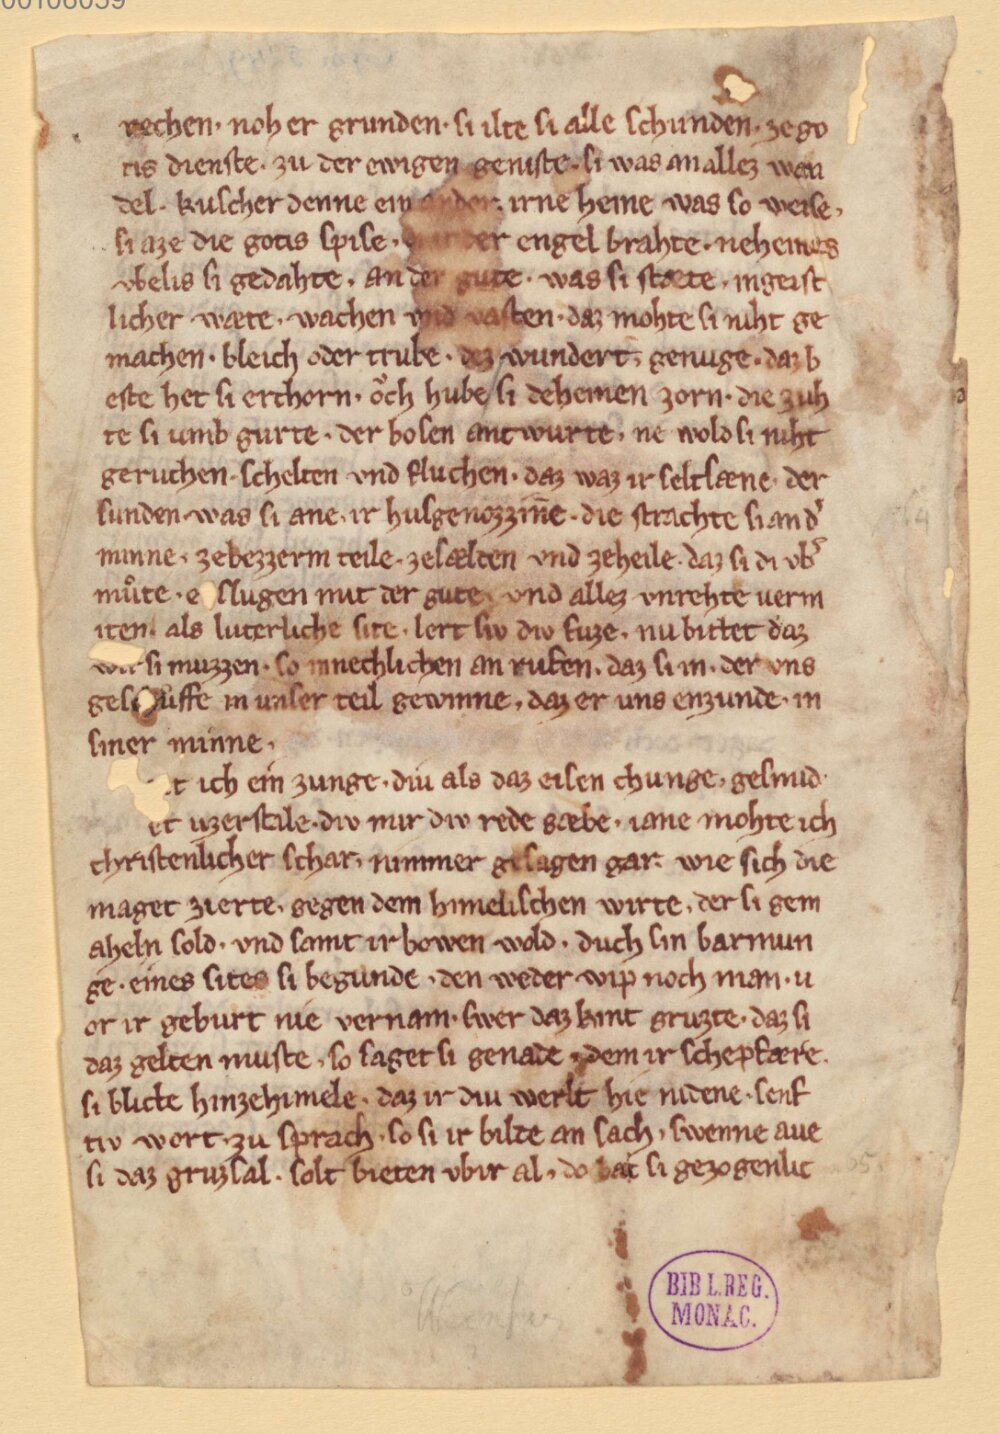 00106039
rechen · noh er grunden · si ilte si alle schunden · ze go
tis dienste · zu der ewigen geniste · si was an allez wan
del · kuscher denne ein ander · ir ne heine was so weise ·
si aze die gotis spise · der engel brahte · neheines
vbelis si gedahte · an der gute · was si stæte · in geist
licher wæte · wachen vnd vasten · daz mohte si niht ge
machen · bleich oder trube · dez wundert genuge · daz b
este het si erchorn · oͮch hube si deheinen zorn · die zuh
te si umb gurte · der bosen antwurte · ne wold si niht
geruchen · schelten vnd fluchen · daz waz ir seltsæne · der
sunden was si ane · ir husgenozzin̄e · die strachte si an d͛
minne · ze bezzerm teile · ze sælden vnd ze heile · daz si di vb͛
muͦte · e slugen mit der gute · vnd allez vnrehte uerm
iten · als luterliche site · lert siv div suze · nu bittet daz
wir si muzzen · so innechlichen an rufen · daz si in · der vns
geschuffe in unser teil gewinne · daz er uns enzunde · in
siner minne ·
t ich ein zunge · diu als daz eisen chunge · gesmid
et uzer stale · div mir div rede gæbe · iane mohte ich
christenlicher schar · nimmer gesagen gar · wie sich die
maget zierte · gegen dem himelischen wirte · der si gem
aheln sold · vnd samt ir bowen wold · duch sin barmun
ge · eines sites si begunde · den weder wip noch man · u
or ir geburt nie vernam · swer daz kint gruzte · daz si
daz gelten muste · so saget si genade · dem ir schepfære ·
si blicte hinze himele · daz ir diu werlt hie nidene · senf
tiv wort · zu sprach · so si ir bilde an sach · swenne aue
si daz gruzsal · solt bieten vbir al · do bat si gezogenlic
BIBL.REG.
MONAC.